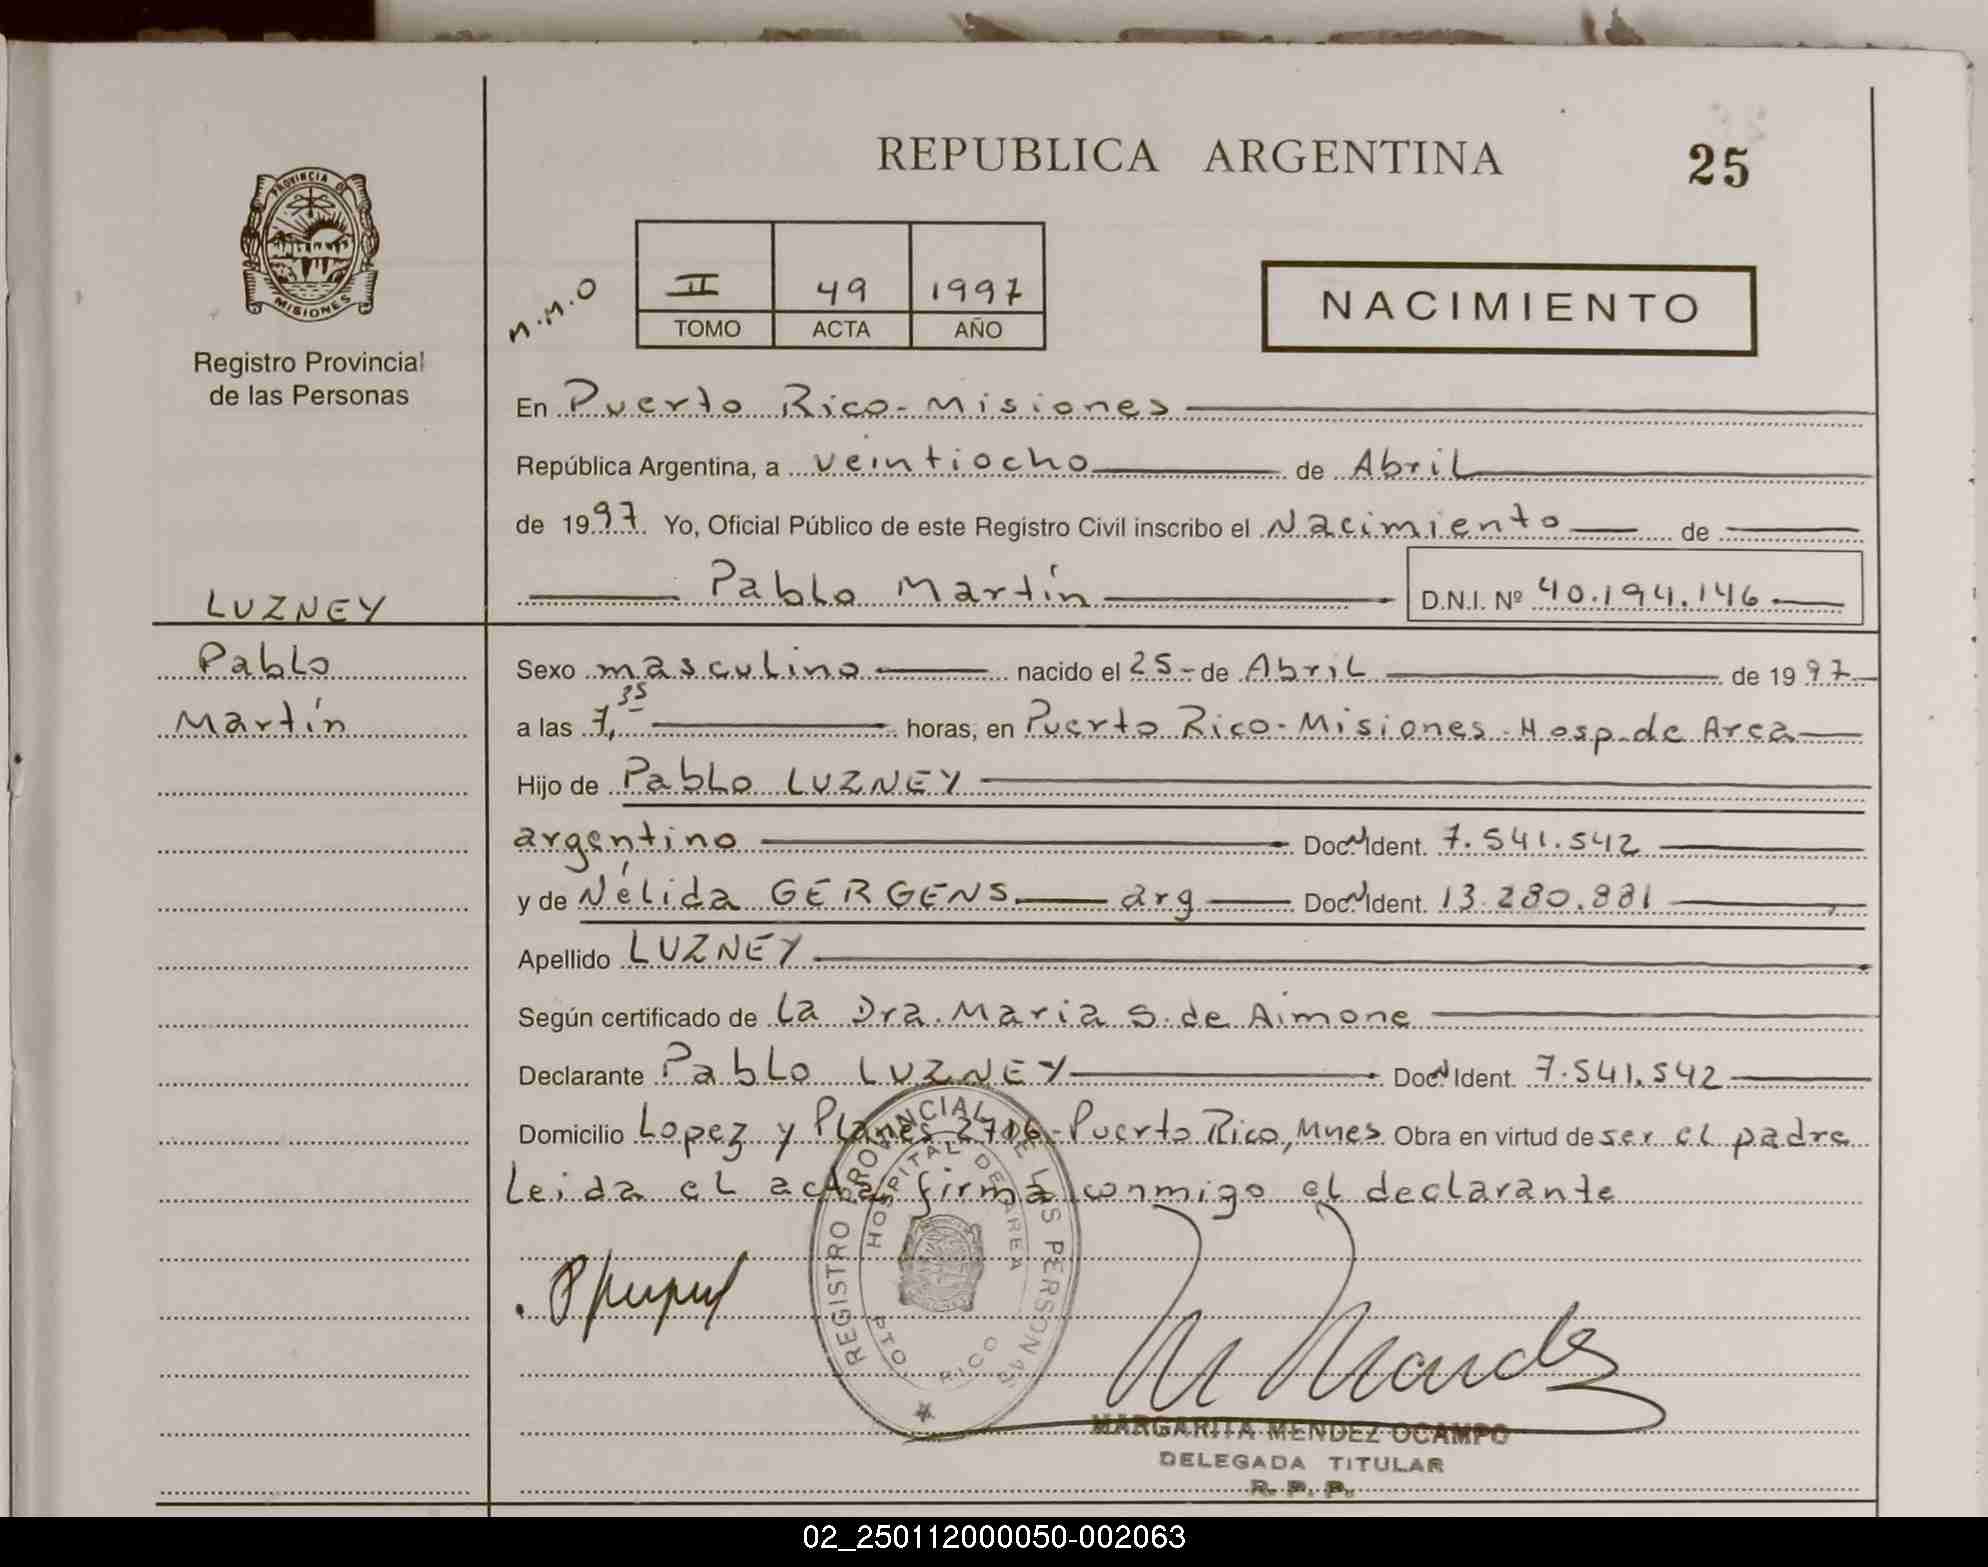 REPUBLICA ARGENTINA
25
PROVINCIA DE
MISIONES
Registro Provincial
de las Personas
M.M.O
II 49 1997
TOMO ACTA AÑO
NACIMIENTO
En Puerto Rico - Misiones
República Argentina, a veintiocho de Abril
de 1997 Yo, Oficial Público de este Registro Civil inscribo el Nacimiento de
Pablo Martín D.N.I. Nº 40.194.146
LUZNEY
Pablo
Martín
Sexo masculino nacido el 25 - de Abril de 1997
a las 7,35 horas, en Puerto Rico - Misiones - Hosp. de Area
Hijo de Pablo LUZNEY
argentino Doc. N Ident. 7.541.542
y de Nélida GERGENS arg Doc. N Ident. 13.280.881
Apellido LUZNEY
Según certificado de la Dra. Maria S. de Aimone
Declarante Pablo LUZNEY Doc. N Ident. 7.541.542
Domicilio Lopez y Planes 2716 - Puerto Rico, Mnes Obra en virtud de ser el padre
Leida el acta firma conmigo el declarante
REGISTRO PROVINCIAL DE LAS PERSONAS
HOSPITAL DE AREA
PTO. RICO
MARGARITA MENDEZ OCAMPO
DELEGADA TITULAR
R. P. P.
02_250112000050-002063